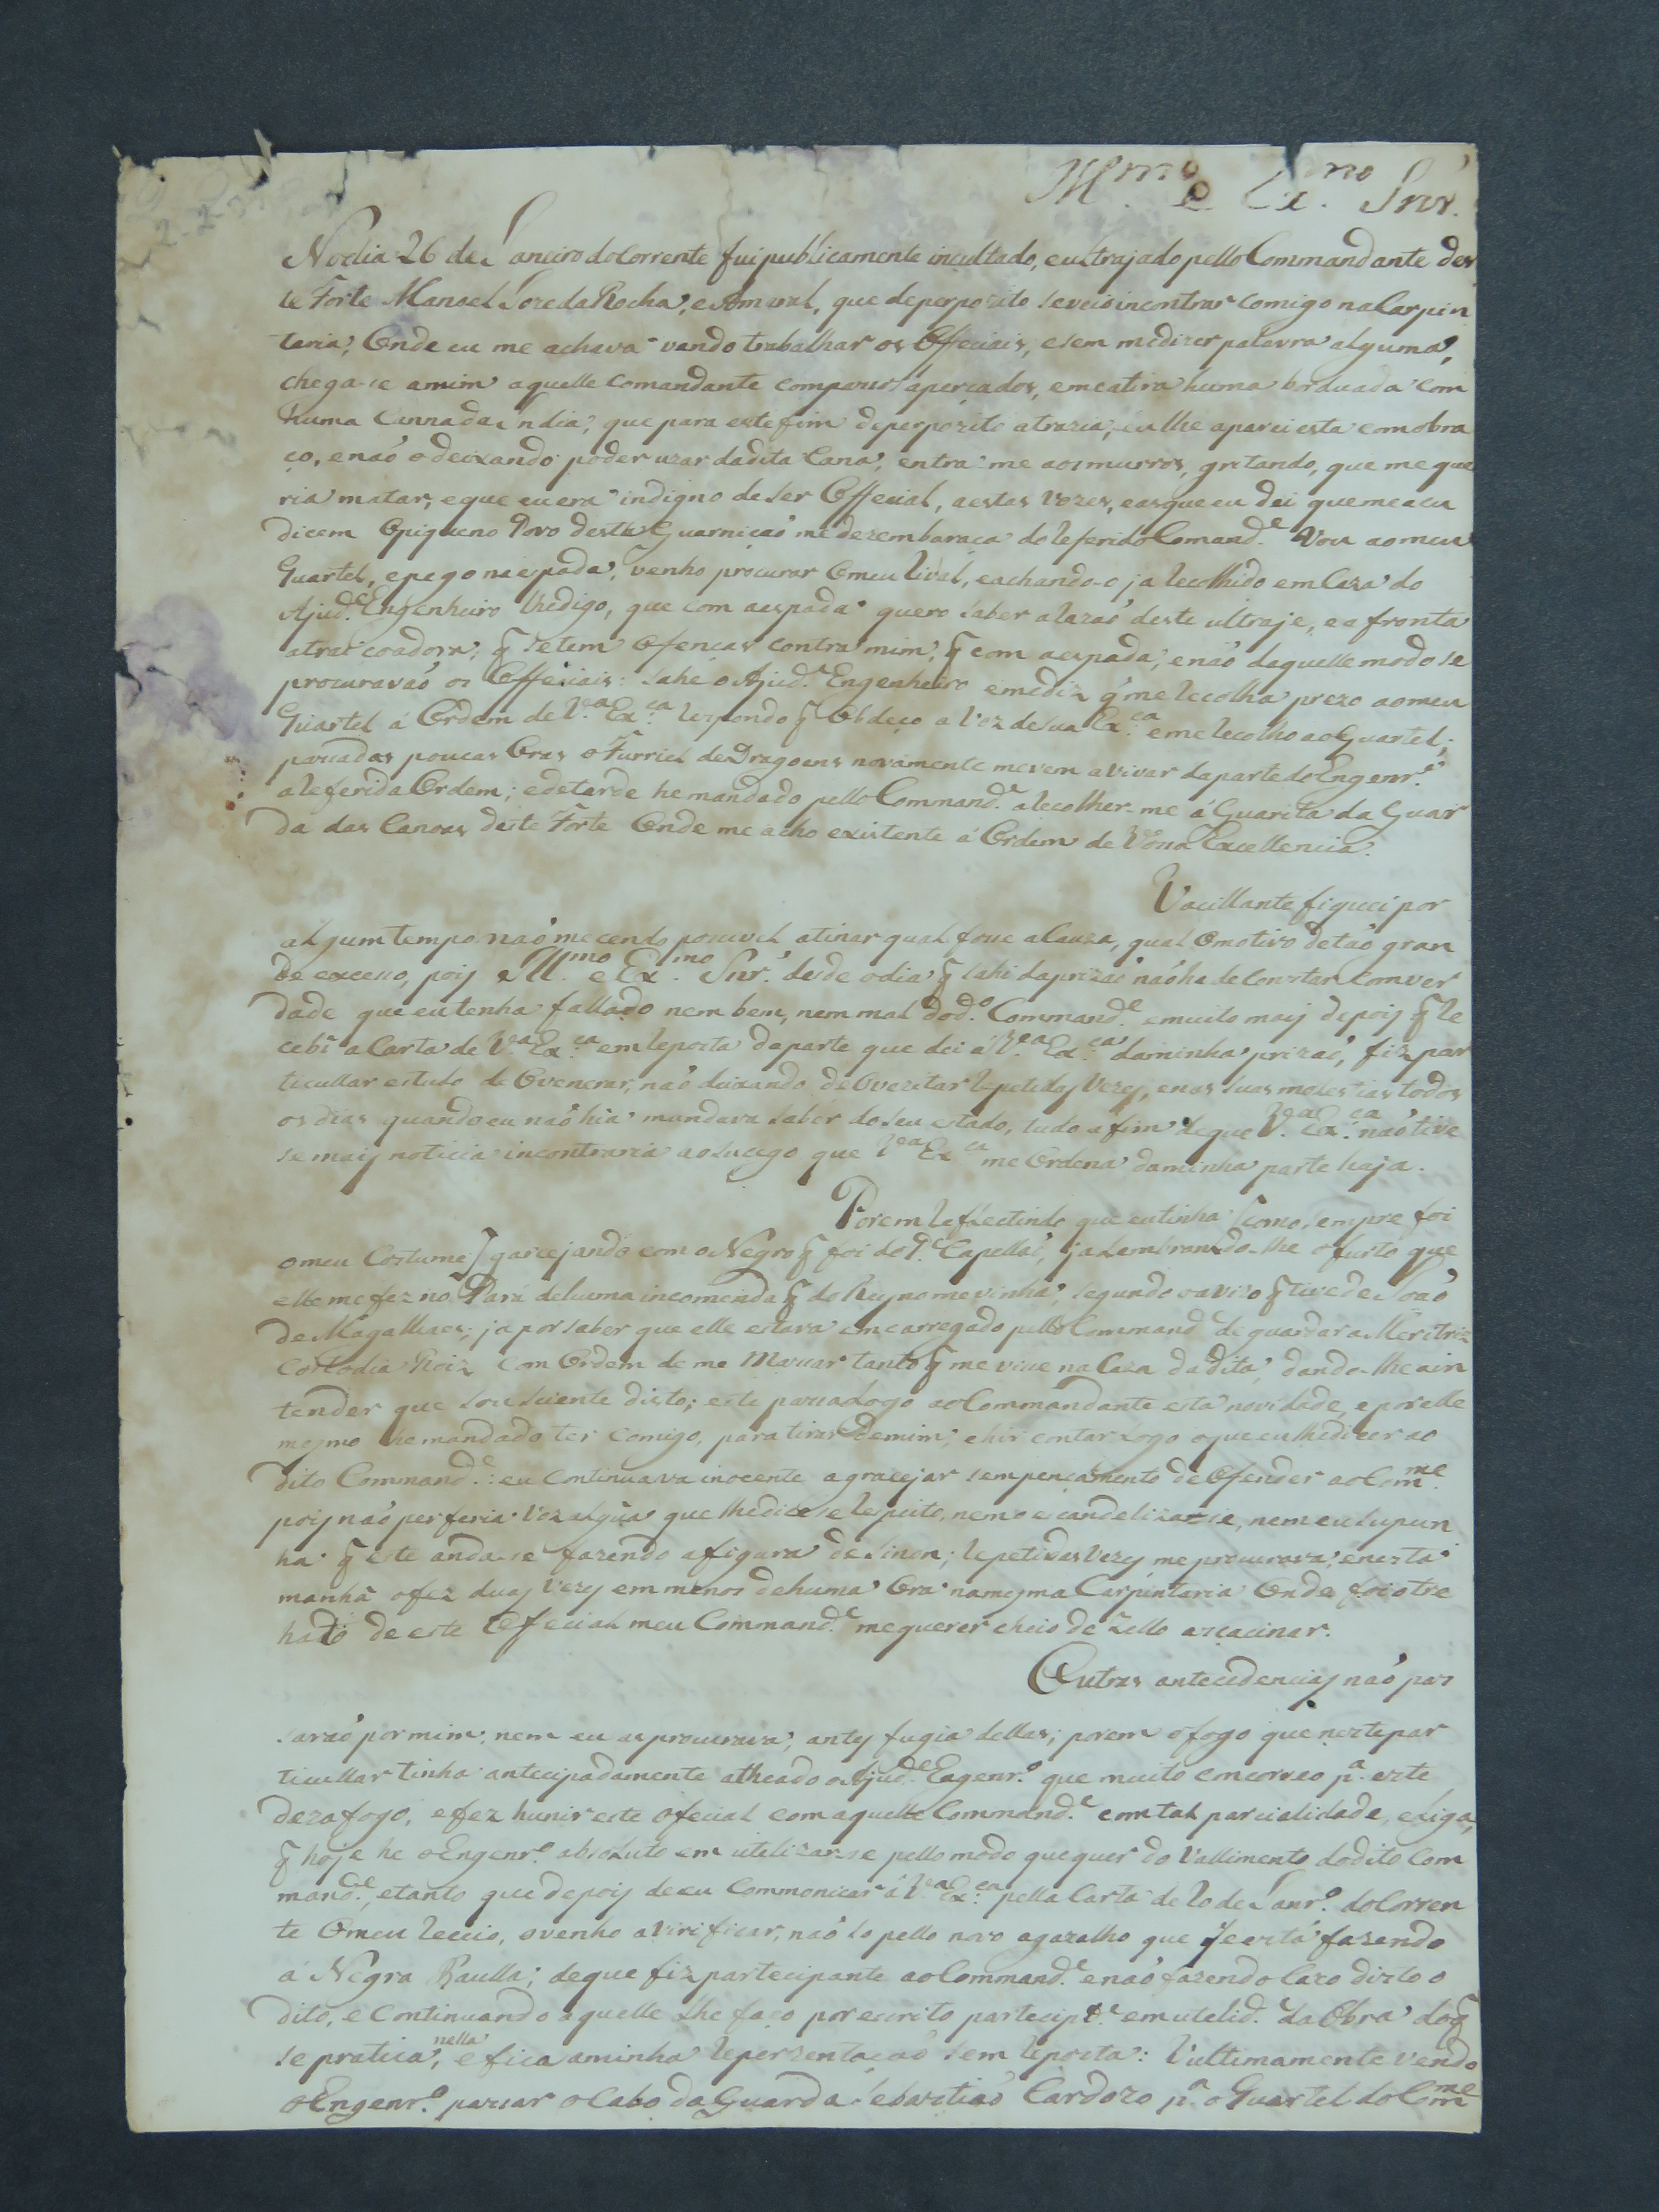 Ill.mo e Ex.mo Snr.
No dia 26 de Janeiro do Corrente fui publicamente incultado, eultrajado pello Commandante des
te Forte Manoel Joze da Rocha, e Amaral, que de perpozito seveio incontrar comigo na Carpin
taria, Onde eu me achava vendo trabalhar os Offeciais, e sem me dizer palavra alguma,
chega-se amim aquelle Comandante compassos apercados, emeatira huma borduada com
huma Canna da India, que para este fim deperpozito atrazia, eu lhe aparei esta com obra
ço, e naõ o deixando poder uzar dadita Cana, entra-me aos murros, gritando, que me que
ria matar, e que eu era indigno de Ser Offecial, a estas Vozes, easque eu dei que meacu
dicem Opiqueno Povo desta Guarniçaõ me dezembaraca do Referido Comand.e Vou ao meu
Quartel, e pego na espada, venho procurar Omeu Rival, e achando-o ja Recolhido em Caza do
Ajud.e Engenheiro lhe digo, que com aespada quero saber a Razaõ deste ultraje, e a fronta
atraicoadora, q se tem Ofenças contra mim, q com aespada, e naõ daquelle modo se
procuravaõ os Offeciais: Sahe o Ajud.e Engenheiro e me diz q' me Recolha prezo ao meu
Quartel á Ordem de V.a Ex.ca Respondo q Obdeço a Voz de Sua Ex.ca e me Recolho ao Quartel;
passadas poucas Oras o Furriel de Dragoens novamente me vem avivar da parte do Engenr.o
a Referida Ordem; e de tarde he mandado pello Command.e a Recolher-me á Guarita da Guar
da das Canoas deste Forte Onde me acho existente á Ordem de Vossa Excellencia.
Vacillante fiquei por
algum tempo naõ me cendo pocivel atinar qual fosse a Cauza, qual Omotivo de taõ gran
de excesso, pois Ill.mo e Ex.mo Snr. desde o dia q Sahi da prizaõ naõ ha de Constar com ver
dade que eu tenha fallado nem bem, nem mal do d.o Command.e e muito mais depois q Re
cebi a Carta de V.a Ex.ca em Reposta da parte que dei á V.a Ex.ca da minha prizaõ, fiz par
ticullar estudo de Ovenerar, naõ deixando de Overitar Repetidas Vezes, e nas suas molestias todos
os dias quando eu naõ hia mandava saber do Seu estado, tudo afim de que V.a Ex.ca naõ tive
se mais noticia incontraria ao Sucego que V.a Ex.ca me Ordena da minha parte haja.
Porem Reflectindo que eu tinha [como sempre foi
o meu Costume] gracejando com o Negro q foi do P.e Capellaõ, ja Lembrando-lhe o furto que
elle me fez no Pará de huma incomenda q do Reyno me vinha, segundo o avizo q tive de Joaõ
de Magalhaes; ja por saber que elle estava emcarregado pello Command.e de guardar a Meretriz
Costodia Roiz com Ordem de me Matar tanto q me vice na Caza da dita, dando-lhe a in
tender que Sou Sciente disto; este passa logo ao Commandante esta novidade, e por elle
mesmo he mandado ter Comigo, para tirar de mim, e hir contar Logo o que eu lhe dicer ao
dito Command.e: eu Continuava inocente a gracejar sem pençamento de Ofender ao Com.me
pois naõ perferia Voz algũa que lhe dicese Respeito, nem o escandelizase, nem eu Supun
ha q este anda-se fazendo a figura de Sinon; Repetidas Vezes me procurava, e nesta
manhã o fez duas Vezes em menos de huma Ora na mesma Carpintaria Onde foi o tre
hado de este Ofecial meu Command.e me querer cheio de Zello assacinar.
Outras antecedencias naõ pas
saraõ por mim, nem eu as procurava, antes fugia dellas; porem o fogo que neste par
ticullar tinha antecipadamente atheado o Ajud.e Engenr.o que muito comcorreo p.a este
dezafogo, e fez hunir este Ofecial com aquelle Command.e com tal parcialidade, e Liga,
q hoje he o Engenr.o absoluto em utelizar-se pello modo que quer do Vallimento do dito Com
mand.e, e tanto que depois de eu Commonicar á V.a Ex.ca pella Carta de 10 de Janr.o do Corren
te Omeu Receio, o venho a Virificar, naõ só pello novo agazalho que se está fazendo
á Negra Paulla; de que fiz partecipante ao Command.e e naõ fazendo Cazo disto o
dito, e Continuando aquelle lhe faço por escrito partecip.e em utelid.e da Obra do q
se pratica nella, e fica a minha Reperzentaçaõ sem Reposta: Vultimamente Vendo
o Engenr.o passar o Cabo da Guarda Sebastiaõ Cardozo p.a o Quartel do Com.me